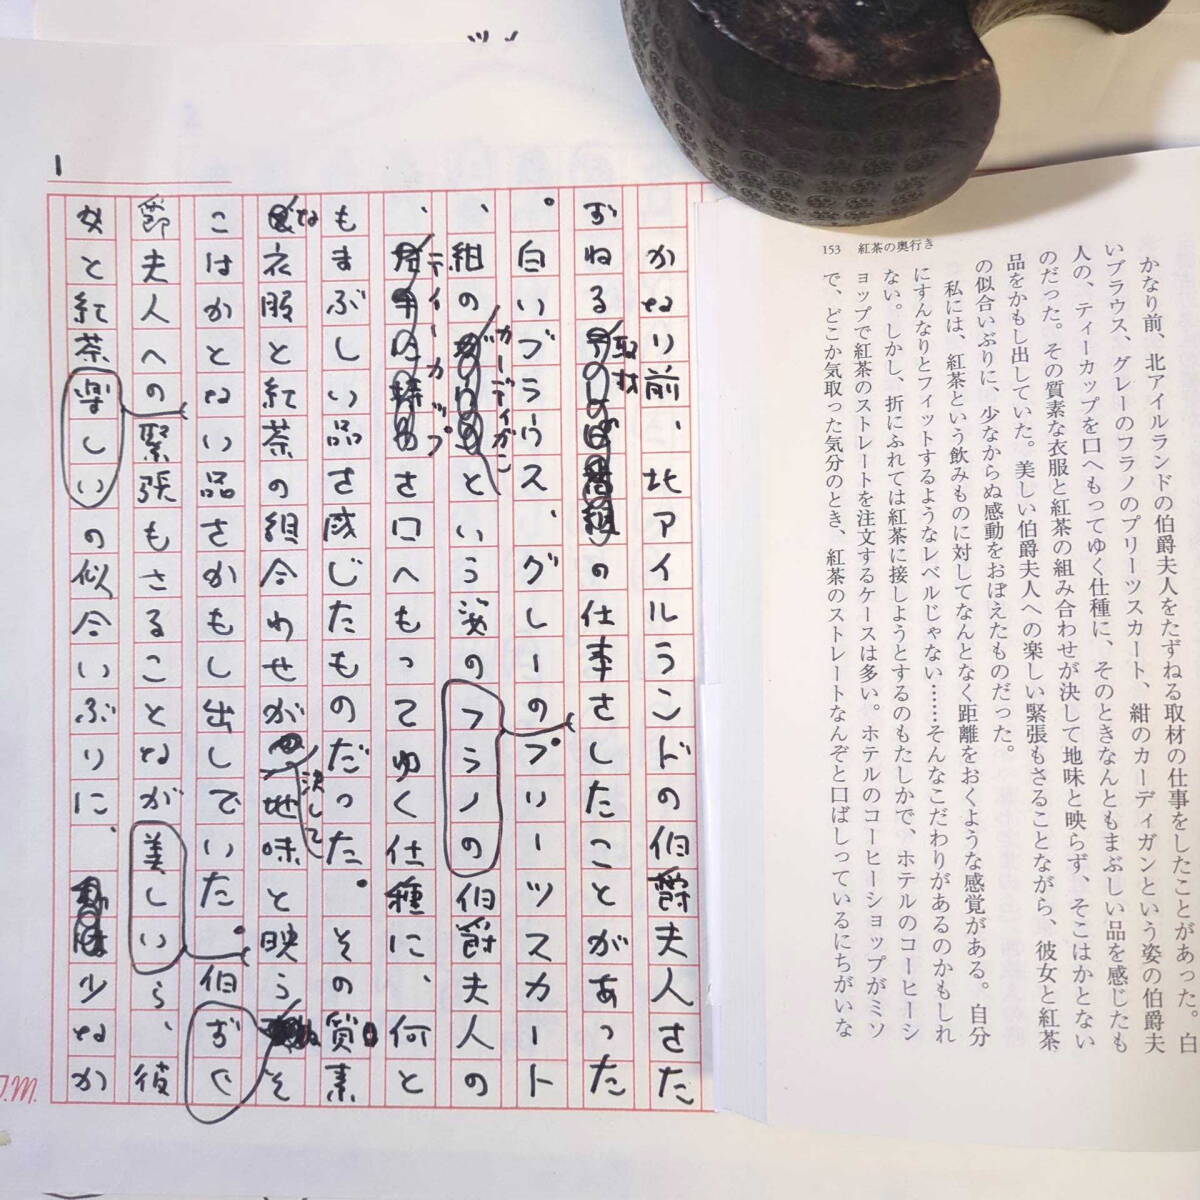 153　紅茶の奥行き
かなり前、北アイルランドの伯爵夫人をたずねる取材の仕事をしたことがあった。白
いブラウス、グレーのフラノのプリーツスカート、紺のカーディガンという姿の伯爵夫
人の、ティーカップを口へもってゆく仕種に、そのときなんともまぶしい品を感じたも
のだった。その質素な衣服と紅茶の組み合わせが決して地味と映らず、そこはかとない
品をかもし出していた。美しい伯爵夫人への楽しい緊張もさることながら、彼女と紅茶
の似合いぶりに、少なからぬ感動をおぼえたものだった。
私には、紅茶という飲みものに対してなんとなく距離をおくような感覚がある。自分
にすんなりとフィットするようなレベルじゃない……そんなこだわりがあるのかもしれ
ない。しかし、折にふれては紅茶に接しようとするのもたしかで、ホテルのコーヒーシ
ョップで紅茶のストレートを注文するケースは多い。ホテルのコーヒーショップがミソ
で、どこか気取った気分のとき、紅茶のストレートなんぞと口ばしっているにちがいな
1
かなり前、北アイルランドの伯爵夫人をた
ずねる取材の仕事をしたことがあった
。白いブラウス、グレーのプリーツスカート
フラノの
、紺のカーディガンという姿の伯爵夫人の
、ティーカップを口へもってゆく仕種に、何と
もまぶしい品を感じたものだった。その質素
な衣服と紅茶の組合わせが決して地味と映らぬそ
こはかとない品をかもし出していた。伯
爵夫人への緊張もさることながら、彼
美しい
女と紅茶の似合いぶりに、少なか
楽しい